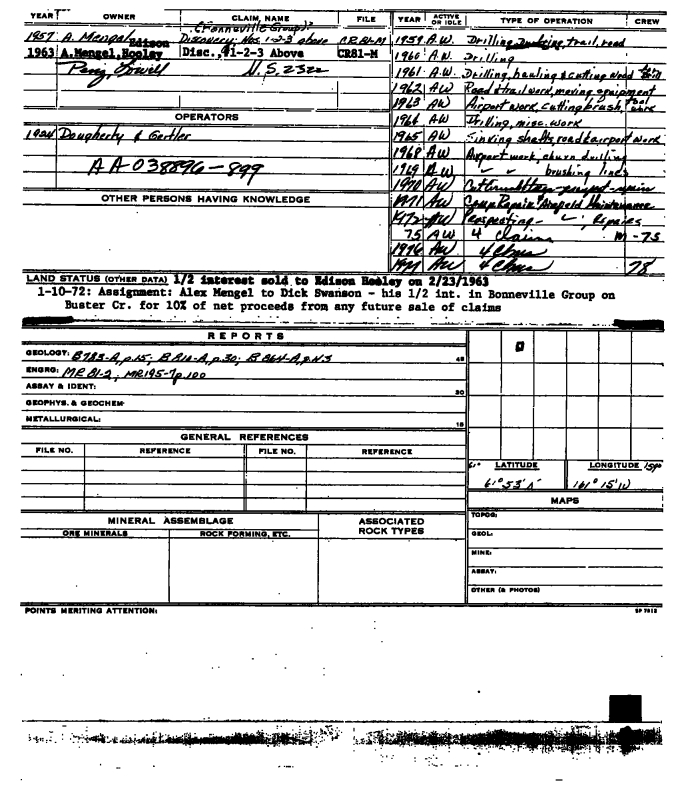 YEAR OWNER CLAIM NAME FILE YEAR ACTIVE OR IDLE TYPE OF OPERATION CREW
(Bonneville Group)
1957 A. Mengel Discovery Nos. 1-2-3 above CR81-M 1959 A.W. Drilling, trail, road
Edison
1963 A.Mengel, Hooley Disc., #1-2-3 Above CR81-M 1960 A.W. Drilling
U.S. 2322 1961 A.W. Drilling, hauling & cutting wood
1962 AW Road & trail work, moving equipment
1963 AW Airport work, cutting brush, tool work
OPERATORS 1964 AW Drilling, misc. work
1924 Dougherty & Gertler 1965 AW Sinking shafts, road & airport work
AA-038896-899 1968 AW Airport work, churn drilling
1969 A.W. brushing lines
OTHER PERSONS HAVING KNOWLEDGE 1970 AW
1971 AW Camp Repair & Airfield Maintenance
1972 AW Prospecting - Repairs
75 AW 4 Claims M-75
1976 AW 4 Clms
1977 AW 4 Clms 78
LAND STATUS (OTHER DATA) 1/2 interest sold to Edison Hooley on 2/23/1963
1-10-72: Assignment: Alex Mengel to Dick Swanson - his 1/2 int. in Bonneville Group on
Buster Cr. for 10% of net proceeds from any future sale of claims
REPORTS
GEOLOGY: B783-A, p.15; B810-A, p.30; B864-A, p.43
ENGRG: MR81-2; MR195-7 p.100
ASSAY & IDENT:
GEOPHYS. & GEOCHEM
METALLURGICAL:
GENERAL REFERENCES
FILE NO. REFERENCE FILE NO. REFERENCE
61° LATITUDE LONGITUDE
61° 53' N 161° 15' W
MAPS
MINERAL ASSEMBLAGE ASSOCIATED ROCK TYPES
ORE MINERALS ROCK FORMING, ETC.
TOPOG:
GEOL:
MINE:
ASSAY:
OTHER (& PHOTOS)
POINTS MERITING ATTENTION: